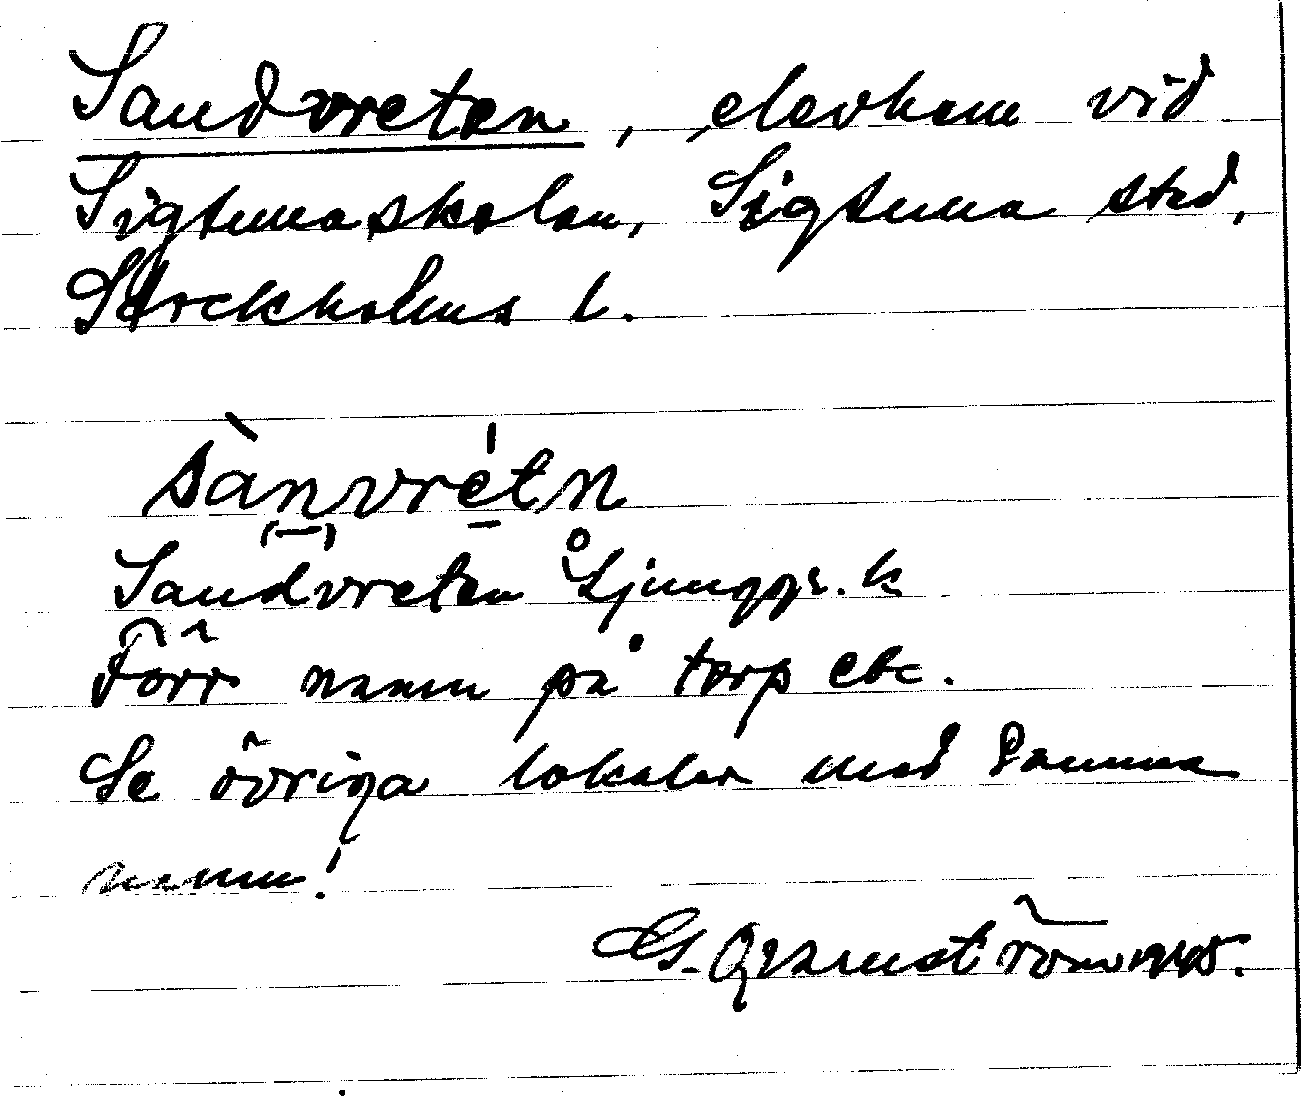 Sandvreten, elevhem vid
Sigtunaskolan, Sigtuna stad,
Stockholms l.
sànvrétn
Sandvreten Ljunggr. k
Förr namn på torp etc.
Se övriga lokaler med samma
namn!
G. Qvarnström 1945.